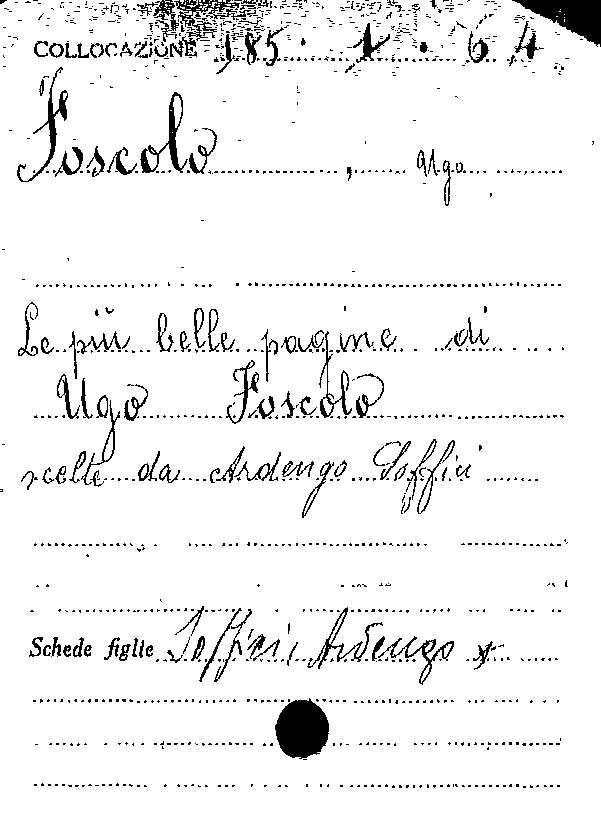 COLLOCAZIONE 185. 1. 64
Foscolo, Ugo
Le più belle pagine di
Ugo Foscolo
scelte da Ardengo Soffici
Schede figlie Soffici, Ardengo